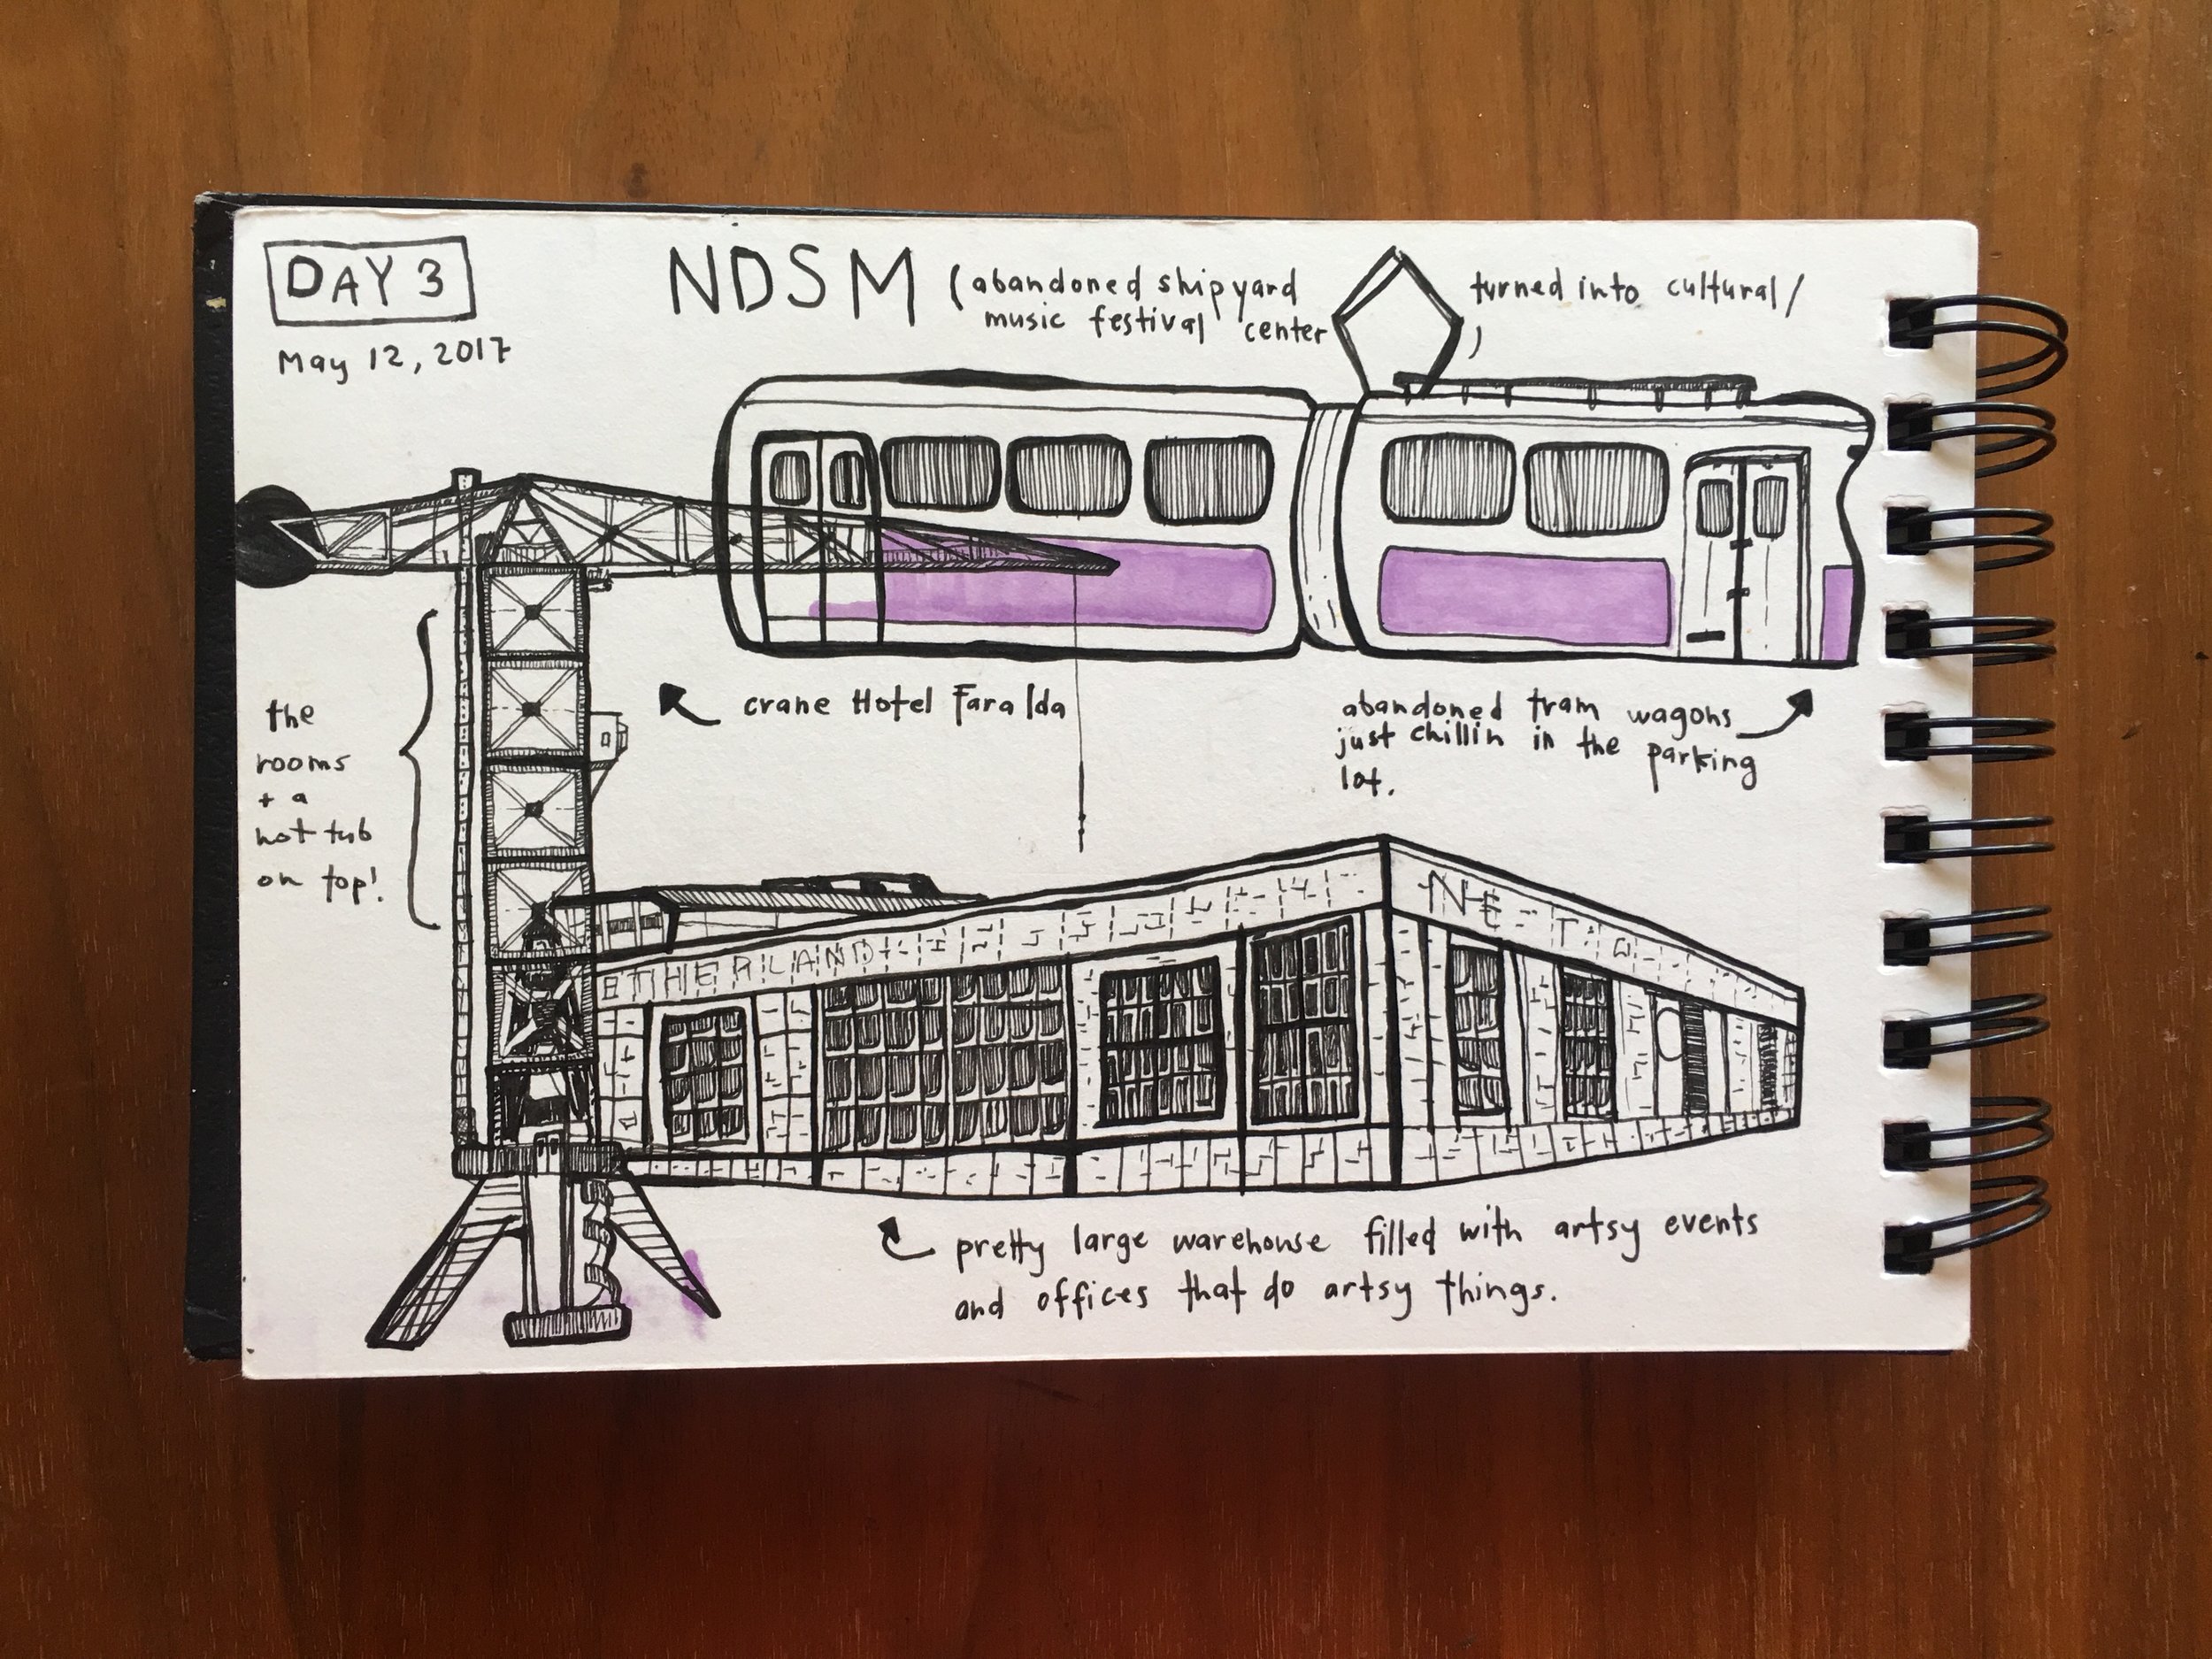 DAY 3
May 12, 2017
NDSM (abandoned shipyard turned into cultural/
music festival center)
crane Hotel Faralda
abandoned tram wagons
just chillin in the parking
lot.
the
rooms
+ a
hot tub
on top!
ETHERLAND
NE
pretty large warehouse filled with artsy events
and offices that do artsy things.